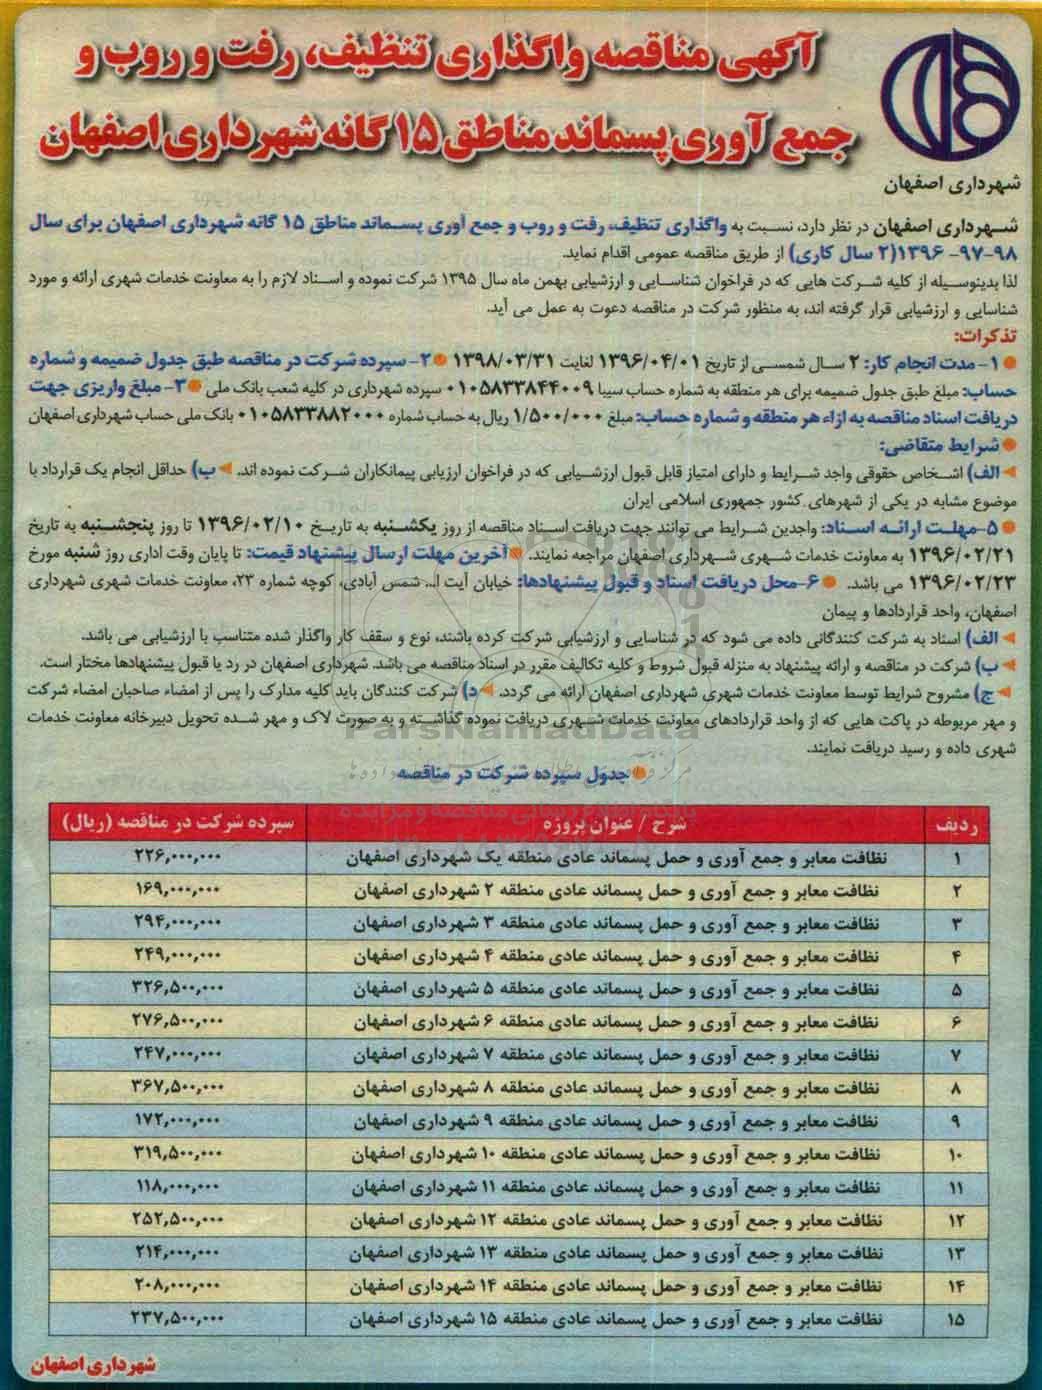 آگهی مناقصه واگذاری تنظیف، رفت و روب و
جمع آوری پسماند مناطق ۱۵ گانه شهرداری اصفهان
شهرداری اصفهان
شهرداری اصفهان در نظر دارد، نسبت به واگذاری تنظیف، رفت و روب و جمع آوری پسماند مناطق ۱۵ گانه شهرداری اصفهان برای سال
۹۸-۹۷- ۱۳۹۶(۲ سال کاری) از طریق مناقصه عمومی اقدام نماید.
لذا بدینوسیله از کلیه شرکت هایی که در فراخوان شناسایی و ارزشیابی بهمن ماه سال ۱۳۹۵ شرکت نموده و اسناد لازم را به معاونت خدمات شهری ارائه و مورد
شناسایی و ارزشیابی قرار گرفته اند، به منظور شرکت در مناقصه دعوت به عمل می آید.
تذکرات:
۱- مدت انجام کار: ۲ سال شمسی از تاریخ ۱۳۹۶/۰۴/۰۱ لغایت ۱۳۹۸/۰۳/۳۱ ۲- سپرده شرکت در مناقصه طبق جدول ضمیمه و شماره
حساب: مبلغ طبق جدول ضمیمه برای هر منطقه به شماره حساب سیبا ۰۱۰۵۸۳۳۸۴۴۰۰۹ سپرده شهرداری در کلیه شعب بانک ملی ۳- مبلغ واریزی جهت
دریافت اسناد مناقصه به ازاء هر منطقه و شماره حساب: مبلغ ۱/۵۰۰/۰۰۰ ریال به حساب شماره ۰۱۰۵۸۳۳۸۸۲۰۰۰ بانک ملی حساب شهرداری اصفهان
شرایط متقاضی:
الف) اشخاص حقوقی واجد شرایط و دارای امتیاز قابل قبول ارزشیابی که در فراخوان ارزیابی پیمانکاران شرکت نموده اند. ب) حداقل انجام یک قرارداد با
موضوع مشابه در یکی از شهرهای کشور جمهوری اسلامی ایران
۵-مهلت ارائه اسناد: واجدین شرایط می توانند جهت دریافت اسناد مناقصه از روز یکشنبه به تاریخ ۱۳۹۶/۰۲/۱۰ تا روز پنجشنبه به تاریخ
۱۳۹۶/۰۲/۲۱ به معاونت خدمات شهری شهرداری اصفهان مراجعه نمایند. آخرین مهلت ارسال پیشنهاد قیمت: تا پایان وقت اداری روز شنبه مورخ
۱۳۹۶/۰۲/۲۳ می باشد. ۶-محل دریافت اسناد و قبول پیشنهادها: خیابان آیت ا... شمس آبادی، کوچه شماره ۲۳، معاونت خدمات شهری شهرداری
اصفهان، واحد قراردادها و پیمان
الف) اسناد به شرکت کنندگانی داده می شود که در شناسایی و ارزشیابی شرکت کرده باشند، نوع و سقف کار واگذار شده متناسب با ارزشیابی می باشد.
ب) شرکت در مناقصه و ارائه پیشنهاد به منزله قبول شروط و کلیه تکالیف مقرر در اسناد مناقصه می باشد. شهرداری اصفهان در رد یا قبول پیشنهادها مختار است.
ج) مشروح شرایط توسط معاونت خدمات شهری شهرداری اصفهان ارائه می گردد. د) شرکت کنندگان باید کلیه مدارک را پس از امضاء صاحبان امضاء شرکت
و مهر مربوطه در پاکت هایی که از واحد قراردادهای معاونت خدمات شهری دریافت نموده گذاشته و به صورت لاک و مهر شده تحویل دبیرخانه معاونت خدمات
شهری داده و رسید دریافت نمایند.
ParsNamadData
جدول سپرده شرکت در مناقصه
ردیف شرح / عنوان پروژه سپرده شرکت در مناقصه (ریال)
۱ نظافت معابر و جمع آوری و حمل پسماند عادی منطقه یک شهرداری اصفهان ۲۲۶,۰۰۰,۰۰۰
۲ نظافت معابر و جمع آوری و حمل پسماند عادی منطقه ۲ شهرداری اصفهان ۱۶۹,۰۰۰,۰۰۰
۳ نظافت معابر و جمع آوری و حمل پسماند عادی منطقه ۳ شهرداری اصفهان ۲۹۴,۰۰۰,۰۰۰
۴ نظافت معابر و جمع آوری و حمل پسماند عادی منطقه ۴ شهرداری اصفهان ۲۴۹,۰۰۰,۰۰۰
۵ نظافت معابر و جمع آوری و حمل پسماند عادی منطقه ۵ شهرداری اصفهان ۳۲۶,۵۰۰,۰۰۰
۶ نظافت معابر و جمع آوری و حمل پسماند عادی منطقه ۶ شهرداری اصفهان ۲۷۶,۵۰۰,۰۰۰
۷ نظافت معابر و جمع آوری و حمل پسماند عادی منطقه ۷ شهرداری اصفهان ۲۴۷,۰۰۰,۰۰۰
۸ نظافت معابر و جمع آوری و حمل پسماند عادی منطقه ۸ شهرداری اصفهان ۳۶۷,۵۰۰,۰۰۰
۹ نظافت معابر و جمع آوری و حمل پسماند عادی منطقه ۹ شهرداری اصفهان ۱۷۲,۰۰۰,۰۰۰
۱۰ نظافت معابر و جمع آوری و حمل پسماند عادی منطقه ۱۰ شهرداری اصفهان ۳۱۹,۵۰۰,۰۰۰
۱۱ نظافت معابر و جمع آوری و حمل پسماند عادی منطقه ۱۱ شهرداری اصفهان ۱۱۸,۰۰۰,۰۰۰
۱۲ نظافت معابر و جمع آوری و حمل پسماند عادی منطقه ۱۲ شهرداری اصفهان ۲۵۲,۵۰۰,۰۰۰
۱۳ نظافت معابر و جمع آوری و حمل پسماند عادی منطقه ۱۳ شهرداری اصفهان ۲۱۴,۰۰۰,۰۰۰
۱۴ نظافت معابر و جمع آوری و حمل پسماند عادی منطقه ۱۴ شهرداری اصفهان ۲۰۸,۰۰۰,۰۰۰
۱۵ نظافت معابر و جمع آوری و حمل پسماند عادی منطقه ۱۵ شهرداری اصفهان ۲۳۷,۵۰۰,۰۰۰
شهرداری اصفهان